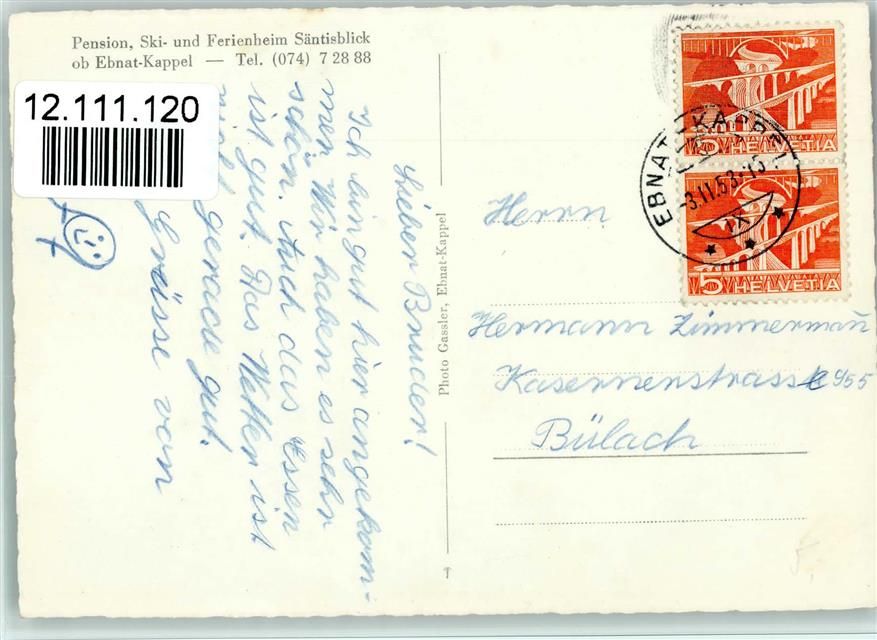 Pension, Ski- und Ferienheim Säntisblick
ob Ebnat-Kappel — Tel. (074) 7 28 88
12.111.120
Lieber Bruder!
Ich bin gut hier angekom-
men. Wir haben es sehr
schön. Auch das Essen
ist gut. Das Wetter ist
gerade gut.
Grüsse von
Photo Gassler, Ebnat-Kappel
5 HELVETIA
5 HELVETIA
EBNAT-KAPPEL
-3.II.53.-15
IX
Herrn
Hermann Zimmermann
Kasernenstrasse 955
Bülach